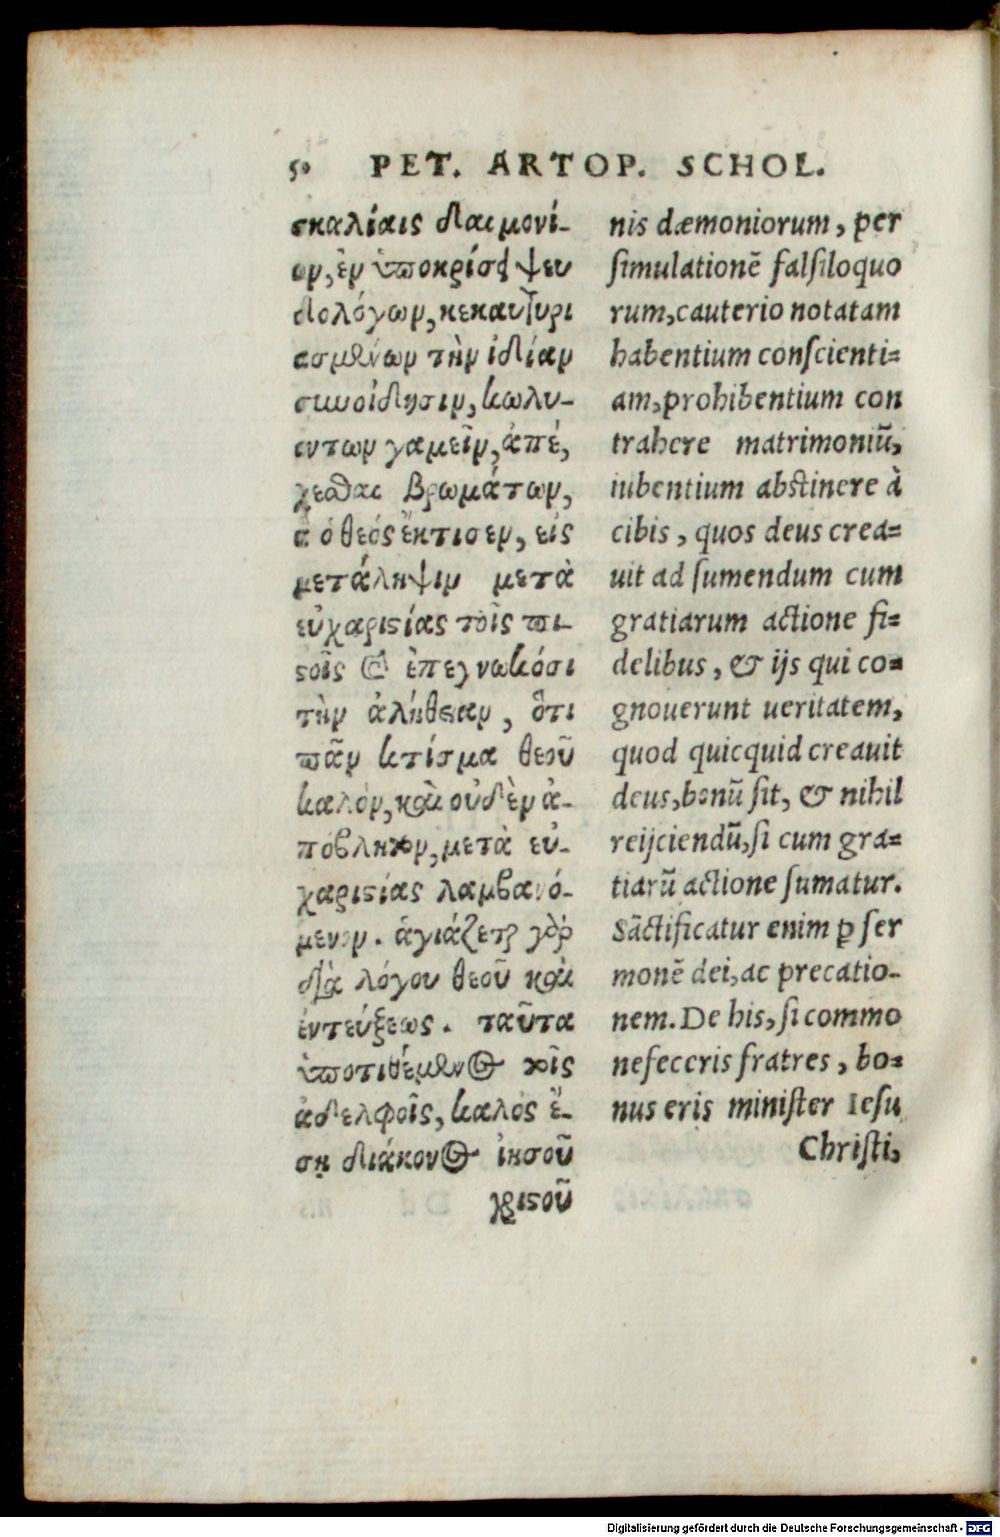 50 PET. ARTOP. SCHOL.
σκαλίαις δαιμονί-
ων, ἐν ὑποκρίσει ψευ
δολόγων, κεκαυτηρι
ασμένων τὴν ἰδίαν
συνοίδησιν, κωλυ-
όντων γαμεῖν, ἀπέ,
χεσθαι βρωμάτων,
ἃ ὁ θεός ἔκτισεν, εἰς
μετάληψιν μετὰ
εὐχαριστίας τοῖς πι-
στοῖς καὶ ἐπεγνωκόσι
τὴν ἀλήθειαν, ὅτι
πᾶν κτίσμα θεοῦ
καλόν, καὶ οὐδὲν ἀ-
πόβλητον, μετὰ εὐ-
χαριστίας λαμβανό-
μενον. ἁγιάζεται γὰρ
διὰ λόγου θεοῦ καὶ
ἐντεύξεως. ταῦτα
ὑποτιθέμενος τοῖς
ἀδελφοῖς, καλός ἔ-
σῃ διάκονος ἰησοῦ
χριστοῦ
nis dæmoniorum, per
simulationē falsiloquo
rum, cauterio notatam
habentium conscienti=
am, prohibentium con
trahere matrimoniū,
iubentium abstinere à
cibis, quos deus crea=
uit ad sumendum cum
gratiarum actione fi=
delibus, & ijs qui co=
gnouerunt ueritatem,
quod quicquid creauit
deus, bonū sit, & nihil
reijciendū, si cum gra=
tiarū actione sumatur.
Sāctificatur enim ꝑ ser
monē dei, ac precatio-
nem. De his, si commo
nefeceris fratres, bo=
nus eris minister Iesu
Christi,
Digitalisierung gefördert durch die Deutsche Forschungsgemeinschaft - DFG